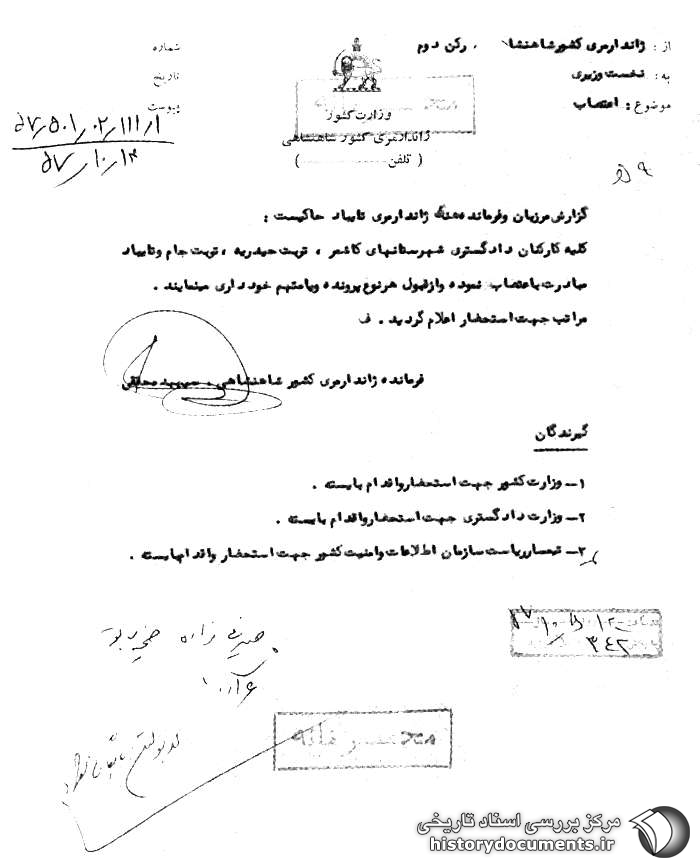 از: ژاندارمری کشور شاهنشا، رکن دوم
به: نخست وزیری
موضوع: اعتصاب
شماره
تاریخ
پیوست
۵۷٫۵۰۱٫۰۲٫۱۱۱٫۱
۵۷٫۱۰٫۱۳
وزارت کشور
ژاندارمری کشور شاهنشاهی
(تلفن.................)
گزارش مرزبان و فرمانده ژاندارمری تایباد حاکیست:
کلیه کارکنان دادگستری شهرستانهای کاشمر، تربت حیدریه، تربت جام و تایباد
مبادرت باعتصاب نموده و از قبول هر نوع پرونده و یا متهم خودداری مینمایند.
مراتب جهت استحضار اعلام گردید. ف
فرمانده ژاندارمری کشور شاهنشاهی، سپهبد محققی
گیرندگان
۱- وزارت کشور جهت استحضار و اقدام بایسته.
۲- وزارت دادگستری جهت استحضار و اقدام بایسته.
۳- تیمسار ریاست سازمان اطلاعات و امنیت کشور جهت استحضار و اقدام بایسته.
۳۴۲
محرمانه
مرکز بررسی اسناد تاریخی
historydocuments.ir